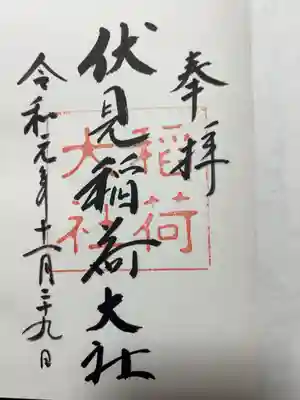 奉拝
伏見稲荷大社
稲荷
大社
令和元年十一月二十九日